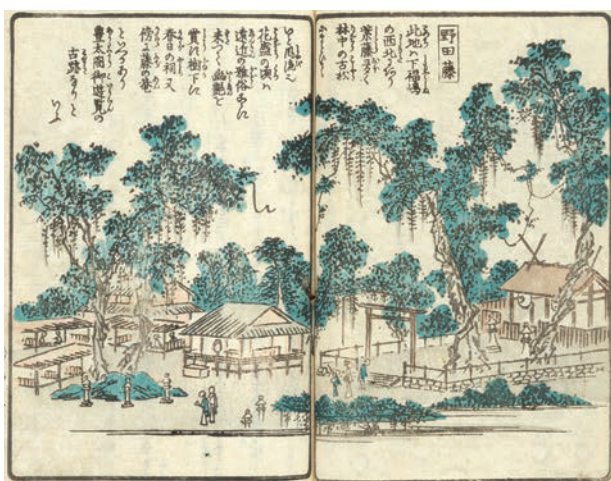 野田藤
此地ハ下福嶋
の西北にあり
紫藤多く
林中の古松
花盛の頃ハ
遠近の雅俗
来つて幽艶を
賞す樹下に
春日の祠又
傍に藤の菴
といへるあり
豊太閤御遊覧の
古跡なりと
いふ